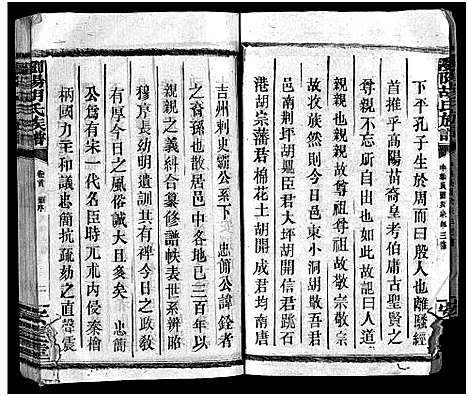 下平孔子生於周而曰殷人也離騷經
首推乎高陽苗裔皇考伯庸古聖賢之
尊親不忘所自出也如此故記曰人道
親親也親親故尊祖尊祖故敬宗敬宗
故收族然則今日邑東小洞胡敬唐
邑南荆坪胡颺臣君大坪胡開信君跳石
港胡宗藩君棉花土胡開成君均南唐
吉州刺史霸公系下忠簡公諱銓者
之裔孫也散居邑中各地已三百年以
上之義糾合纂修譜帙表世系辨昭
穆序長幼明遺訓其有裨今日之政敎
有厚今日之風俗誠大且多矣 忠簡
公爲有宋一代名臣時兀朮内侵秦檜
柄國力主和議忠簡抗疏劾之直聲震
瀏陽胡氏族譜
卷首 源序